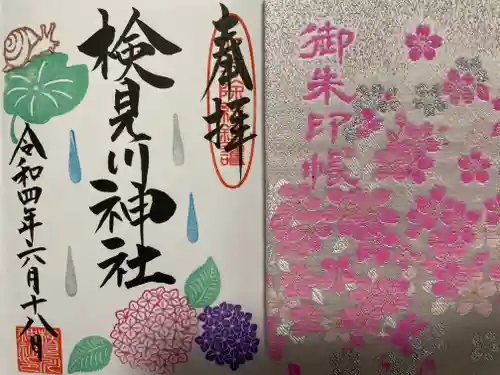 奉拝
検見川神社
令和四年六月十八日
御朱印帳